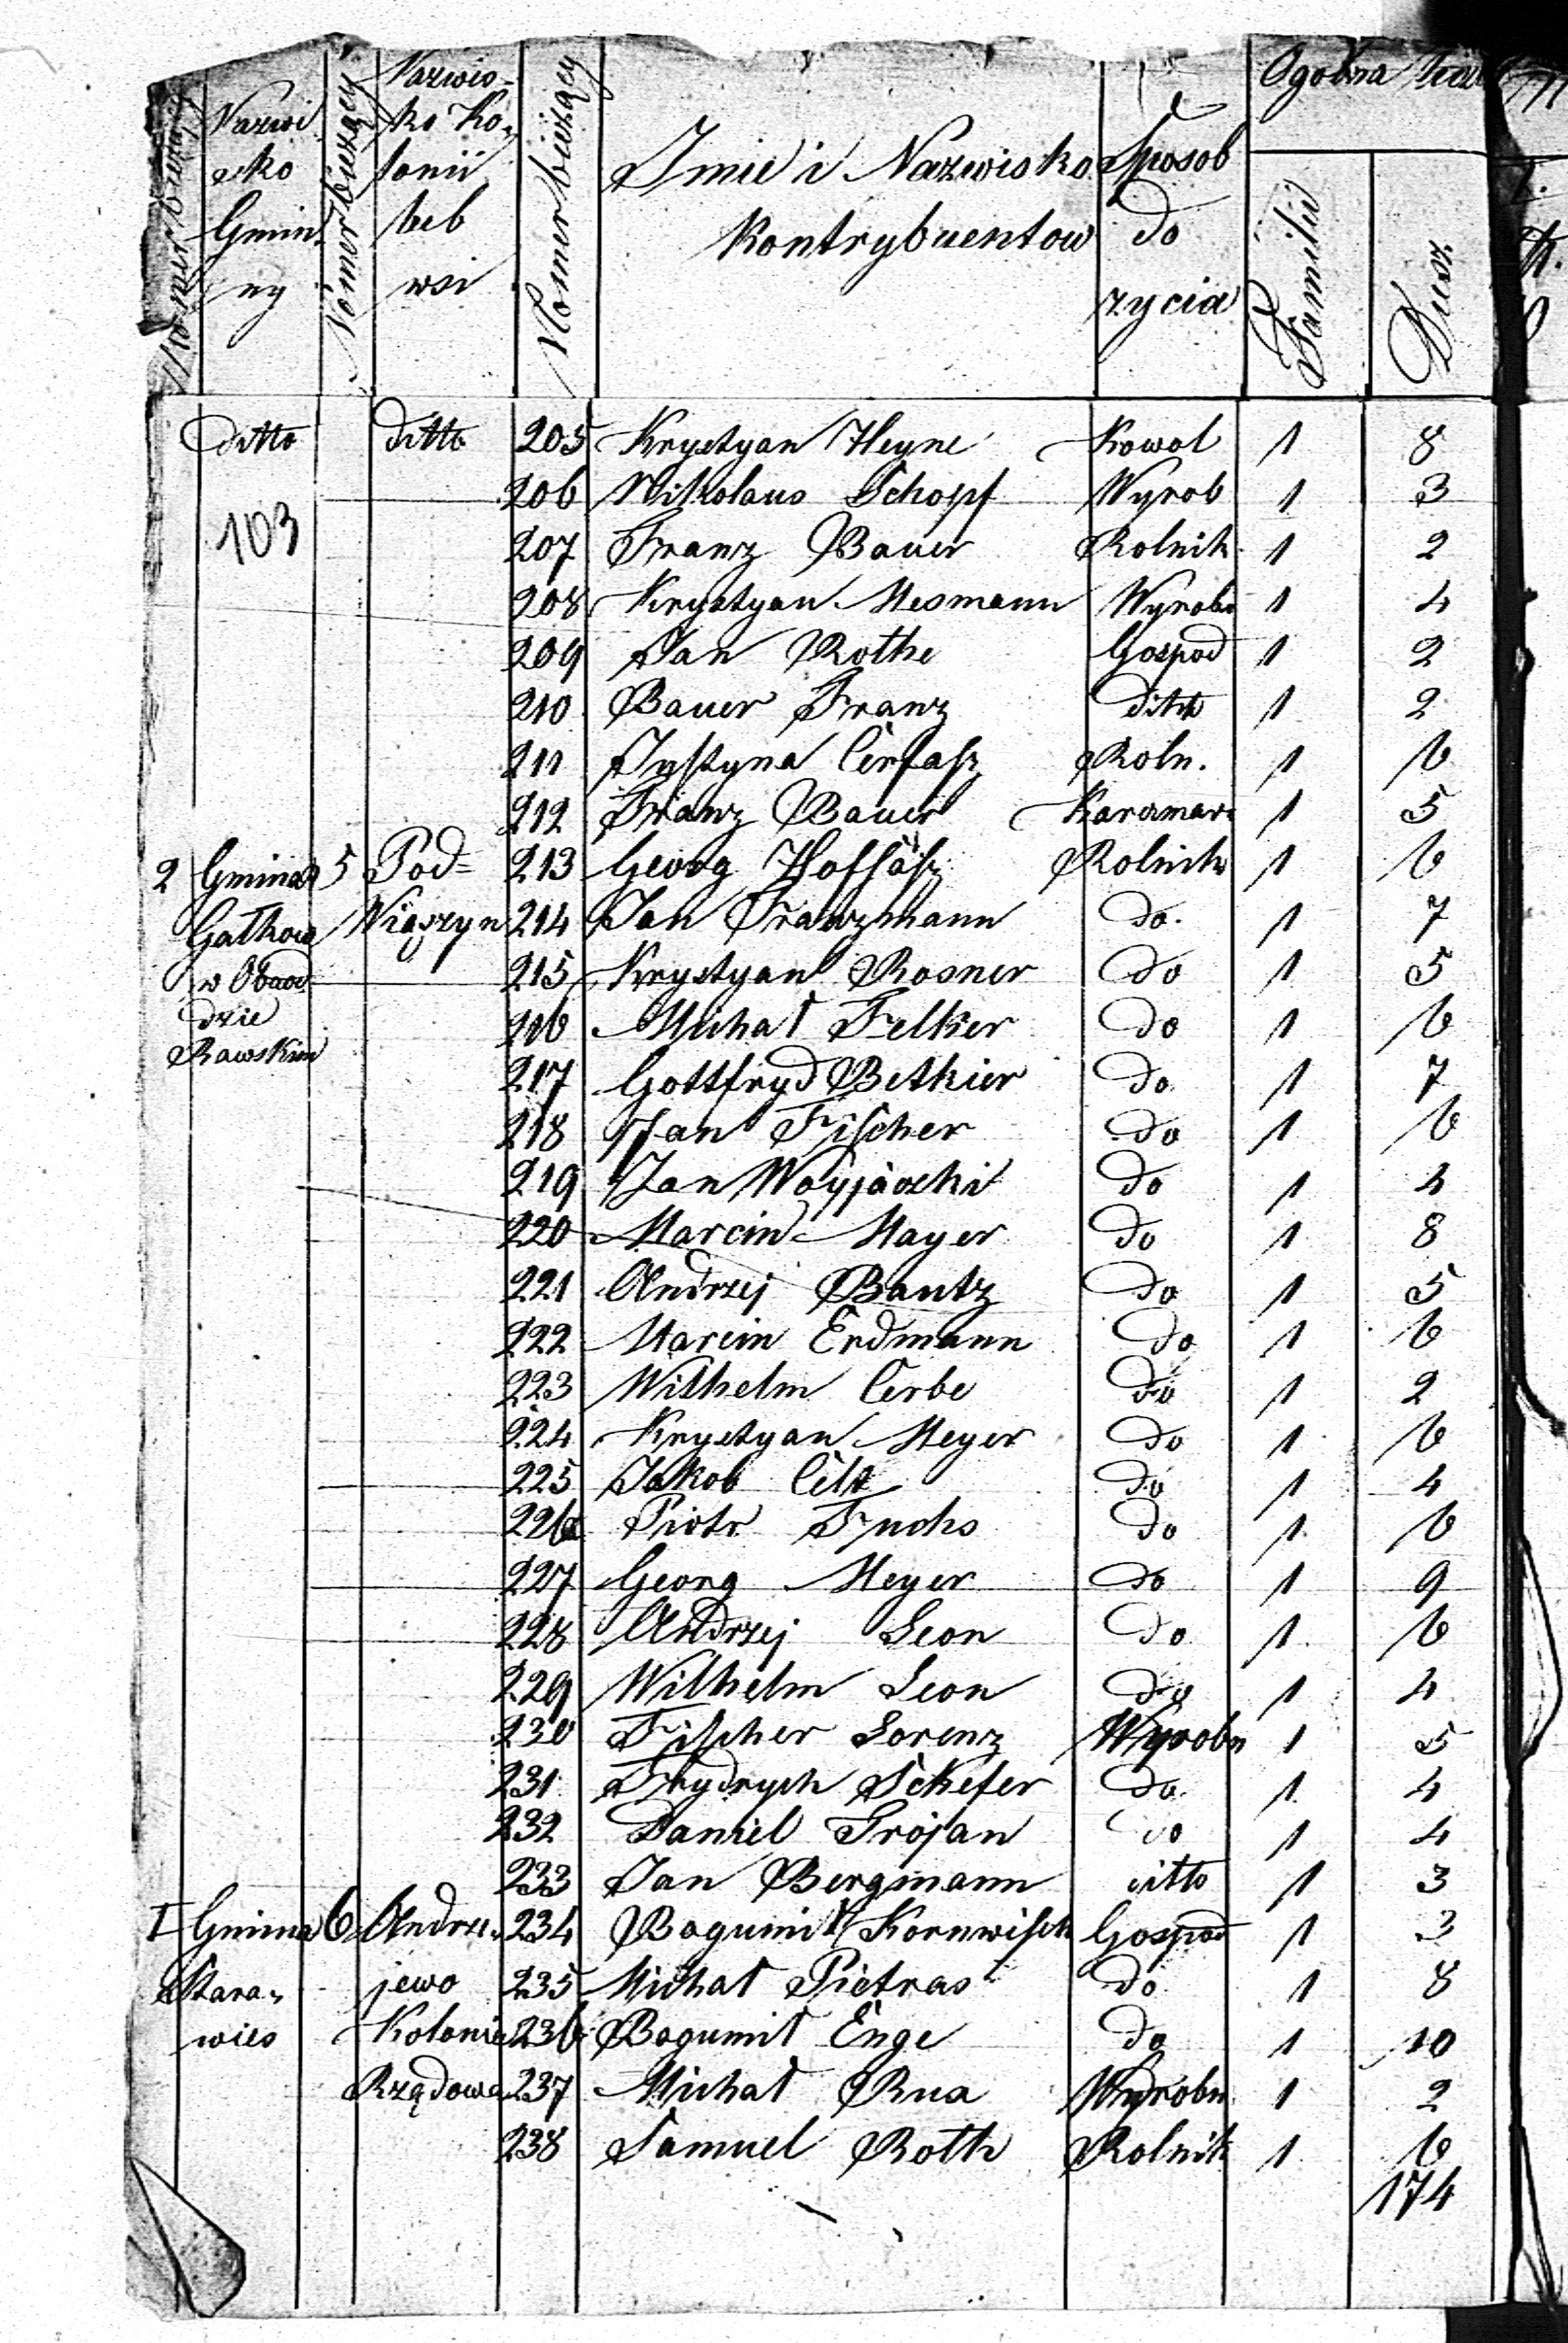 Nomer bieżący | Nazwisko Gminny | Nomer bieżący | Nazwisko Kolonii leb wsi | Nomer bieżący | Jmie i Nazwisko Kontrybuentow | Sposob do zycia | Ogolna | Familii | Dusz
ditto ditto 205 Krystyan Heyne Kowol 1 8
206 Nikolaus Schopf Wyrob 1 3
103 207 Franz Bauer Rolnik 1 2
208 Krystyan Mesmann Wyrobn 1 4
209 Jan Rothe Gospod 1 2
210 Bauer Franz ditto 1 2
211 Justyna Cerfasz Roln. 1 6
212 Franz Bauer Karczmarz 1 5
2 Gmina 5 Pod= 213 Georg Hoffäsz Rolnik 1 6
Gałkow Wiączyn 214 Jan Franzmann do. 1 7
w Obwod 215 Krystyan Rosner do 1 5
dzie 216 Michał Felker do 1 6
Rawskim 217 Gottfryd Betkier do 1 7
218 Jan Fischer do 1 6
219 Jan do 1 4
220 Marcin Mayer do 1 8
221 Andrzej Bantz do 1 5
222 Marcin Erdmann do 1 6
223 Wilhelm Cerbe do 1 2
224 Krystyan Meyer do 1 6
225 Jakob Celt do 1 4
226 Piotr Fuchs do 1 6
227 Georg Meyer do 1 9
228 Andrzej Leon do 1 6
229 Wilhelm Leon do 1 4
230 Fischer Lorenz Wyrobn 1 5
231 Frydrych Schefer do 1 4
232 Daniel Trojan do 1 4
233 Jan Bergmann ditto 1 3
I Gmina 6 Andrze= 234 Bogumił Kornwisch Gospod 1 3
Stara= jewo 235 Michał Pietras do 1 8
wies Kolonia 236 Bogumił Enge do 1 10
Rządowa 237 Michał Rua Wyrobn. 1 2
238 Samuel Roth Rolnik 1 6
174